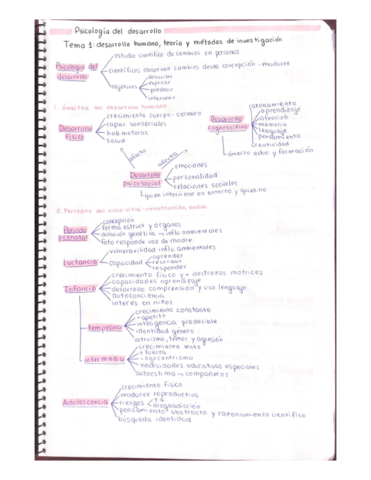 Psicología del desarrollo
Tema 1: desarrollo humano, teoría y métodos de investigación
Psicología del desarrollo
estudio científico de cambios en personas
científicos observan cambios desde concepción - madurez
objetivos
describir
explicar
predecir
intervenir
1. Ámbitos del desarrollo humano
Desarrollo físico
crecimiento cuerpo - cerebro
capac. sensoriales
hab. motoras
salud
Desarrollo cognoscitivo
aprendizaje
atención
memoria
lenguaje
pensamiento
creatividad
ámbito educ. y formación
afecta
afecta
Desarrollo psicosocial
emociones
personalidad
relaciones sociales
quien interviene en entorno y quien no
2. Periodos del ciclo vital: construcción social
Periodo prenatal
concepción
forma estruct. y órganos
dotación genética → influ. ambientales
feto responde voz de madre.
Lactancia
vulnerabilidad influ. ambientales
capacidad
aprender
recordar
responder
Infancia
crecimiento físico y + destrezas motrices
capacidades aprendizaje
desarrollo comprensión y uso lenguaje
autoconciencia
interés en niños
temprana
crecimiento constante
- apetito
inteligencia predecible
identidad género
altruismo, temor y agresión
intermedia
crecimiento lento
+ fuerza
- egocentrismo
necesidades educativas especiales
autoestima → compañeros
Adolescencia
crecimiento físico
madurez reproductiva
riesgos
T.A
drogadicción
pensamiento abstracto y razonamiento científico
búsqueda identidad